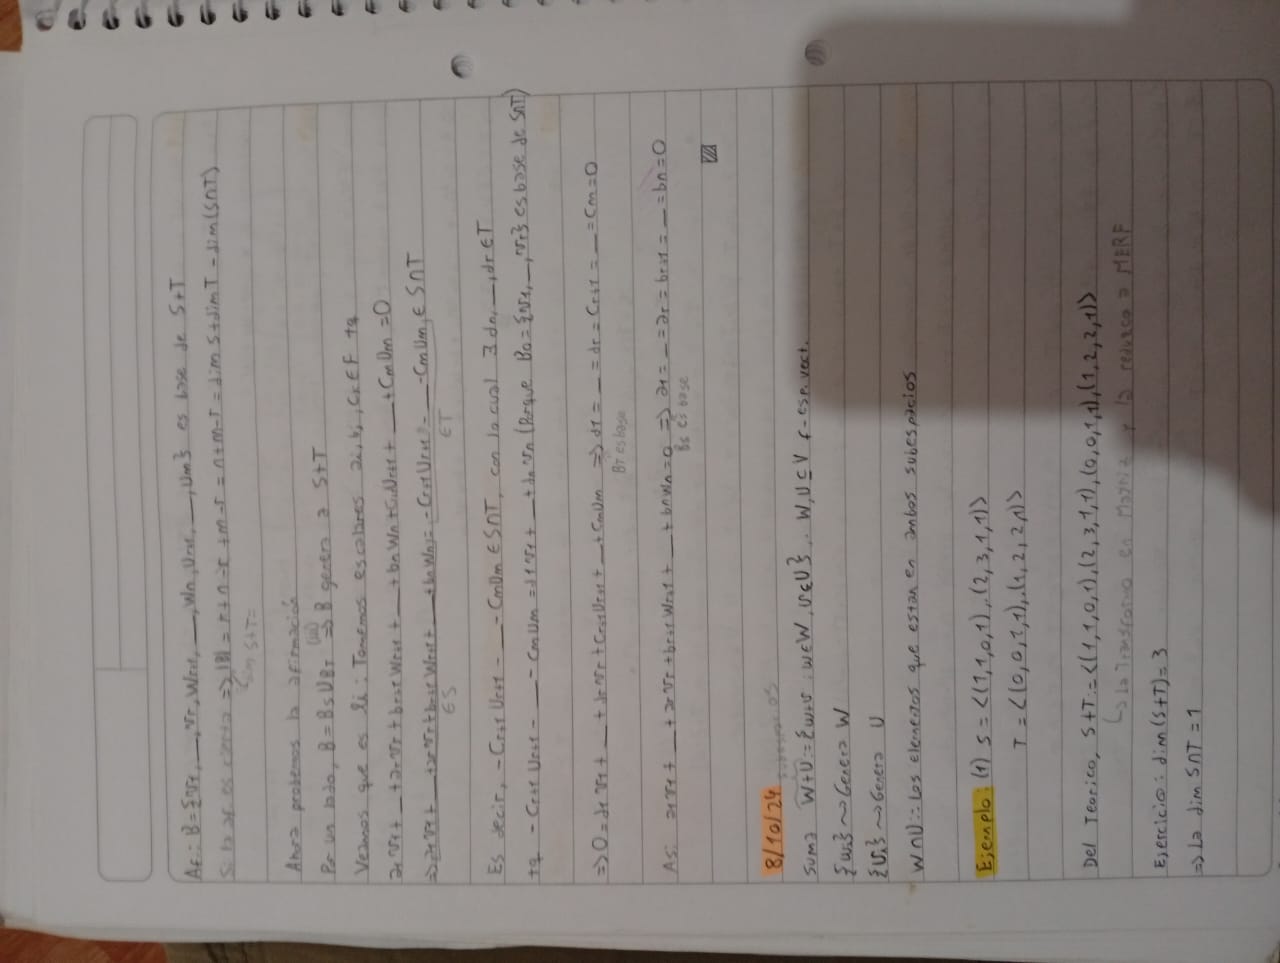 Af: B={v1, _, vr, Wr+1, _, Wn, Ur+1, _, Um} es base de S+T
Si la af es cierta => |B| = r+n-r+m-r = n+m-r = dim S+dim T - dim(S∩T)
dim S+T=
Ahora probemos la afirmación
Por un lado, B = BS∪BT => B genera a S+T
Veamos que es li: Tomemos escalares ai, bi, Ck ∈ F tq
a1v1+ _ +arvr+br+1Wr+1+ _ +bnWn+Cr+1Ur+1+ _ +CmUm=0
=> a1v1+ _ +arvr+br+1Wr+1+ _ +bnWn = -Cr+1Ur+1- _ -CmUm ∈ S∩T
∈S ∈T
Es decir, -Cr+1Ur+1- _ -CmUm ∈ S∩T, con lo cual ∃ d1, _, dr ∈ T
tq -Cr+1Ur+1- _ -CmUm = d1v1+ _ +drvr (Porque B0={v1, _, vr} es base de S∩T)
=> 0=d1v1+ _ +drvr+Cr+1Ur+1+ _ +CmUm => d1= _ =dr=Cr+1= _ =Cm=0
BT es base
Asi a1v1+ _ +arvr+br+1Wr+1+ _ +bnWn=0 => a1= _ =ar=br+1= _ =bn=0
BS es base
8/10/24
Suma subespacios W+U:={w+v : w∈W, v∈U}. W,U ⊆ V F-esp.vect.
{wi} ~> Genera W
{vi} ~> Genera U
W∩U:= Los elementos que estan en ambos subespacios
Ejemplo: (1) S=<(1,1,0,1),(2,3,1,1)>
T=<(0,0,1,1),(1,2,2,1)>
Del Teorico, S+T:=<(1,1,0,1),(2,3,1,1),(0,0,1,1),(1,2,2,1)>
↳ la Transformo en Matriz y la reduzco a MERF
Ejercicio: dim(S+T)=3
=> La dim S∩T=1